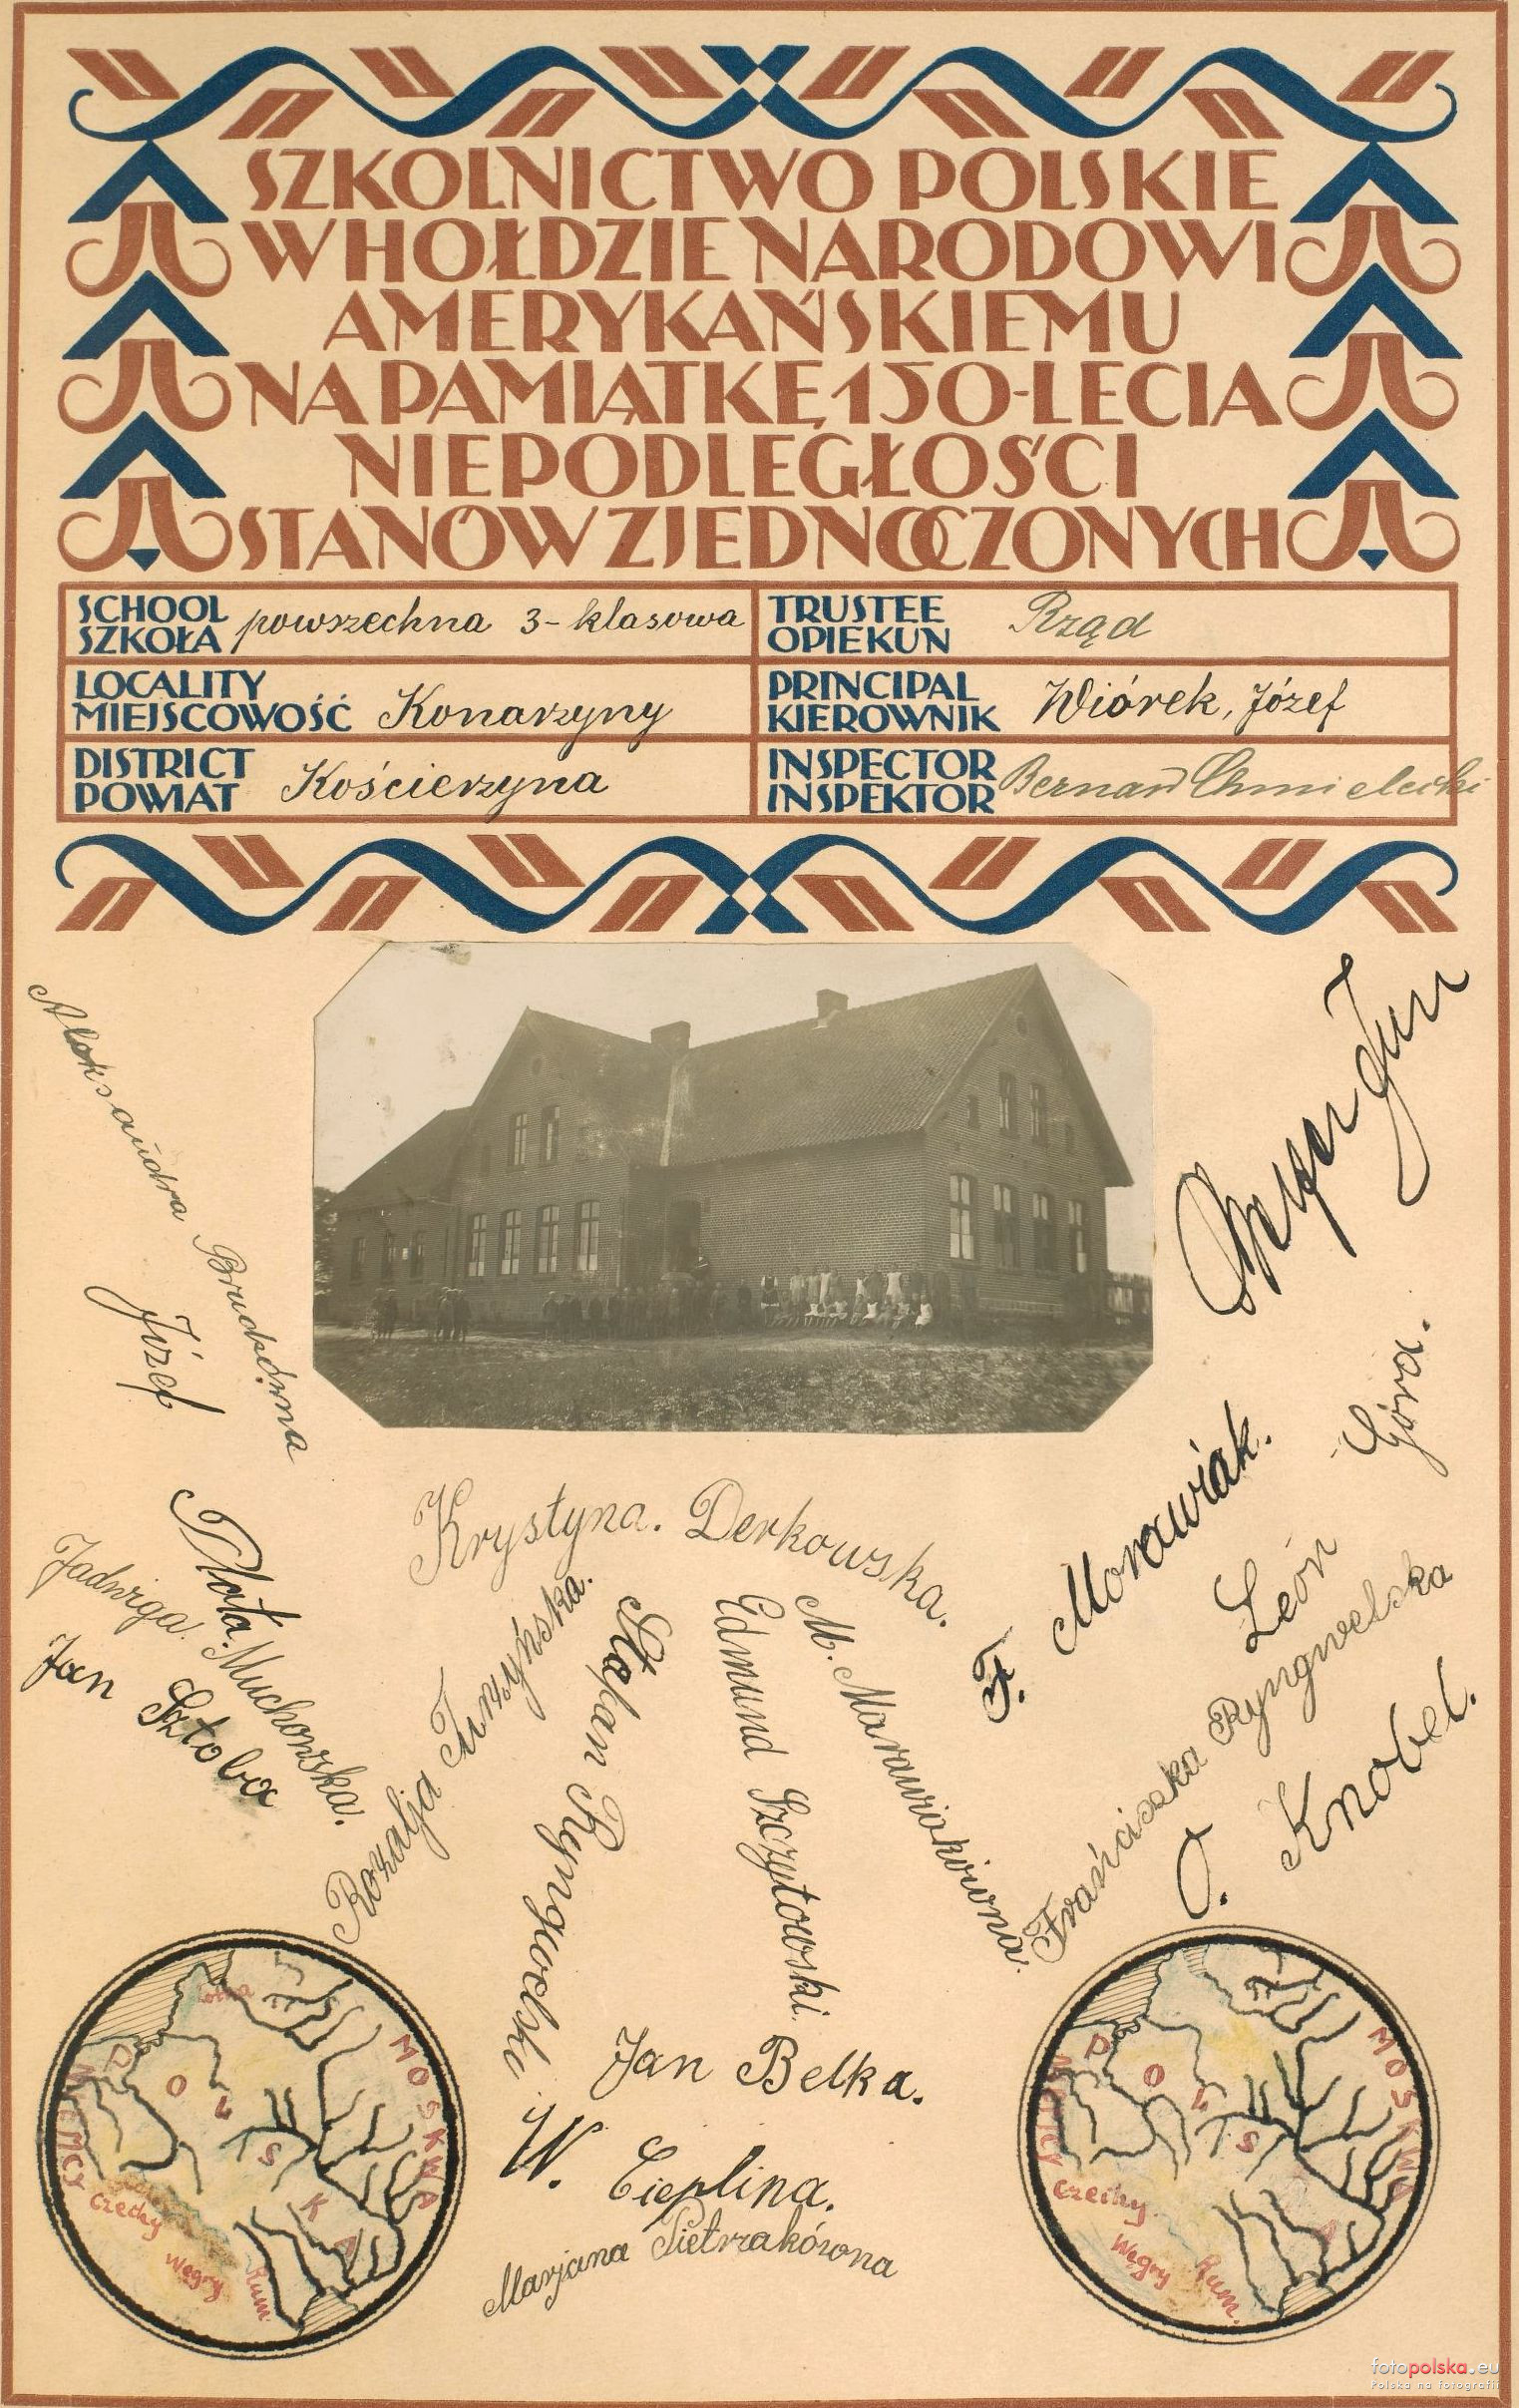 SZKOLNICTWO POLSKIE
W HOŁDZIE NARODOWI
AMERYKAŃSKIEMU
NA PAMIĄTKĘ 150-LECIA
NIEPODLEGŁOŚCI
STANÓW ZJEDNOCZONYCH
SCHOOL
SZKOŁA powszechna 3-klasowa
TRUSTEE
OPIEKUN Rząd
LOCALITY
MIEJSCOWOŚĆ Konarzyny
PRINCIPAL
KIEROWNIK Wiórek, Józef
DISTRICT
POWIAT Kościerzyna
INSPECTOR
INSPEKTOR Bernard Chmielecki
Aleksandra
Józef
Góra.
Krystyna. Derkowska.
F. Morawiak.
Leon
Jadwiga. Muchowska.
Jan Sztoba
Rozalja Turzyńska.
Stefan
Edmund Szczytowski.
M. Marawiakówna.
Frańciszka Ryngwelska
J. Knobel.
Jan Belka.
W. Cieplina.
Marjana Pietrzakówna
POLSKA
MOSKWA
NIEMCY
Czechy
Węgry
Rum.
POLSKA
MOSKWA
NIEMCY
Czechy
Węgry
Rum.
fotopolska.eu
Polska na fotografii